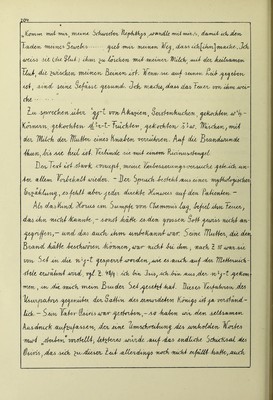 204
„Komm mit mir, meine Schwester Nephthys, wandle mit mir, damit ich den
Faden meiner Gewebs- gieb mir meinen Weg, dass ich mache. Ich
weiss sie (die Glut) ihm zu löschen mit meiner Milch, mit der heilsamen
Flut, die zwischen meinen Beinen ist. Wenn sie auf seinen Leib gegeben
ist, sind seine Gefässe gesund. Ich mache, dass das Feuer von ihm wei-
che
Zu sprechen über von Akazien, Gerstenkuchen, gekochten
Körnern, gekochten Früchten, gekochten Mischen, mit
der Milch der Mutter eines Knaben verrühren. Auf die Brandwunde
thun, bis sie heil ist. Verbinde sie mit einem Ricinusstengel.
Der Text ist stark corrupt, meine Verbesserungsversuche gebe ich un-
ter allem Vorbehalt wieder. – Der Spruch besteht aus einer mythologischen
Erzählung, es fehlt aber jeder direkte Hinweis auf den Patienten –
Als das Kind Horus im Sumpfe von Chemmis lag, befiel ihn Feuer,
das ihn nicht kannte, – sonst hätte es den grossen Gott gewiss nicht an-
gegriffen, – und das auch ihm unbekannt war. Seine Mutter, die den
Brand hätte beschwören können, war nicht bei ihm, nach Z 10 war sie
von Set in die gesperrt worden, wie es auch auf der Metternich-
stele erwähnt wird, vgl. Z 48/4: ich bin Isis, ich bin aus der gekom-
men, in die mich mein Bruder Set gesetzt hat. Dieses Verfahren des
Usurpators gegenüber der Gattin des ermordeten Königs ist ja verständ-
lich – Sein Vater Osiris war gestorben, – so haben wir den seltsamen
Ausdruck aufzufassen, der eine Umschreibung des unholden Wortes
mwt „sterben“ vorstellt, letzteres würde auf das endliche Schicksal des
Osiris, das sich zu dieser Zeit allerdings noch nicht erfüllt hatte, auch